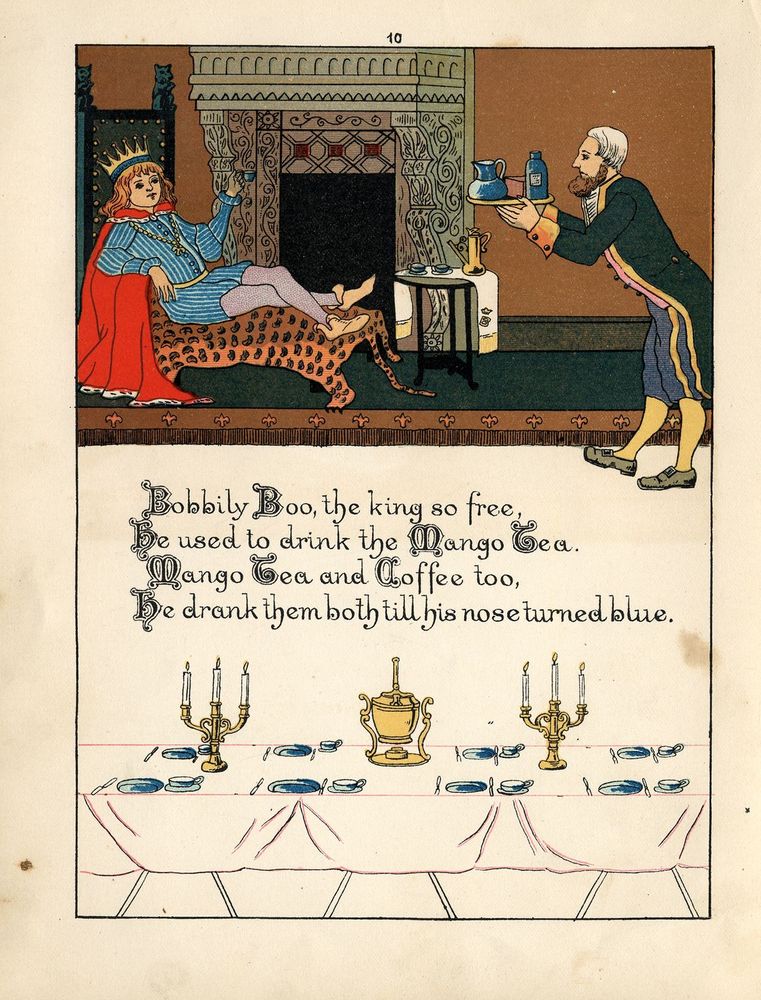 10
Bobbily Boo, the king so free,
He used to drink the Mango Tea.
Mango Tea and Coffee too,
He drank them both till his nose turned blue.